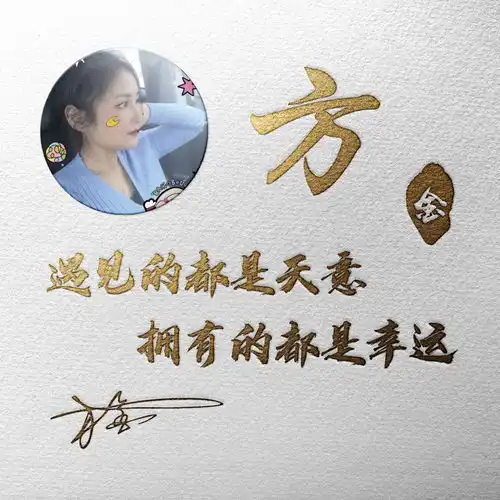 方
金
遇见的都是天意
拥有的都是幸运